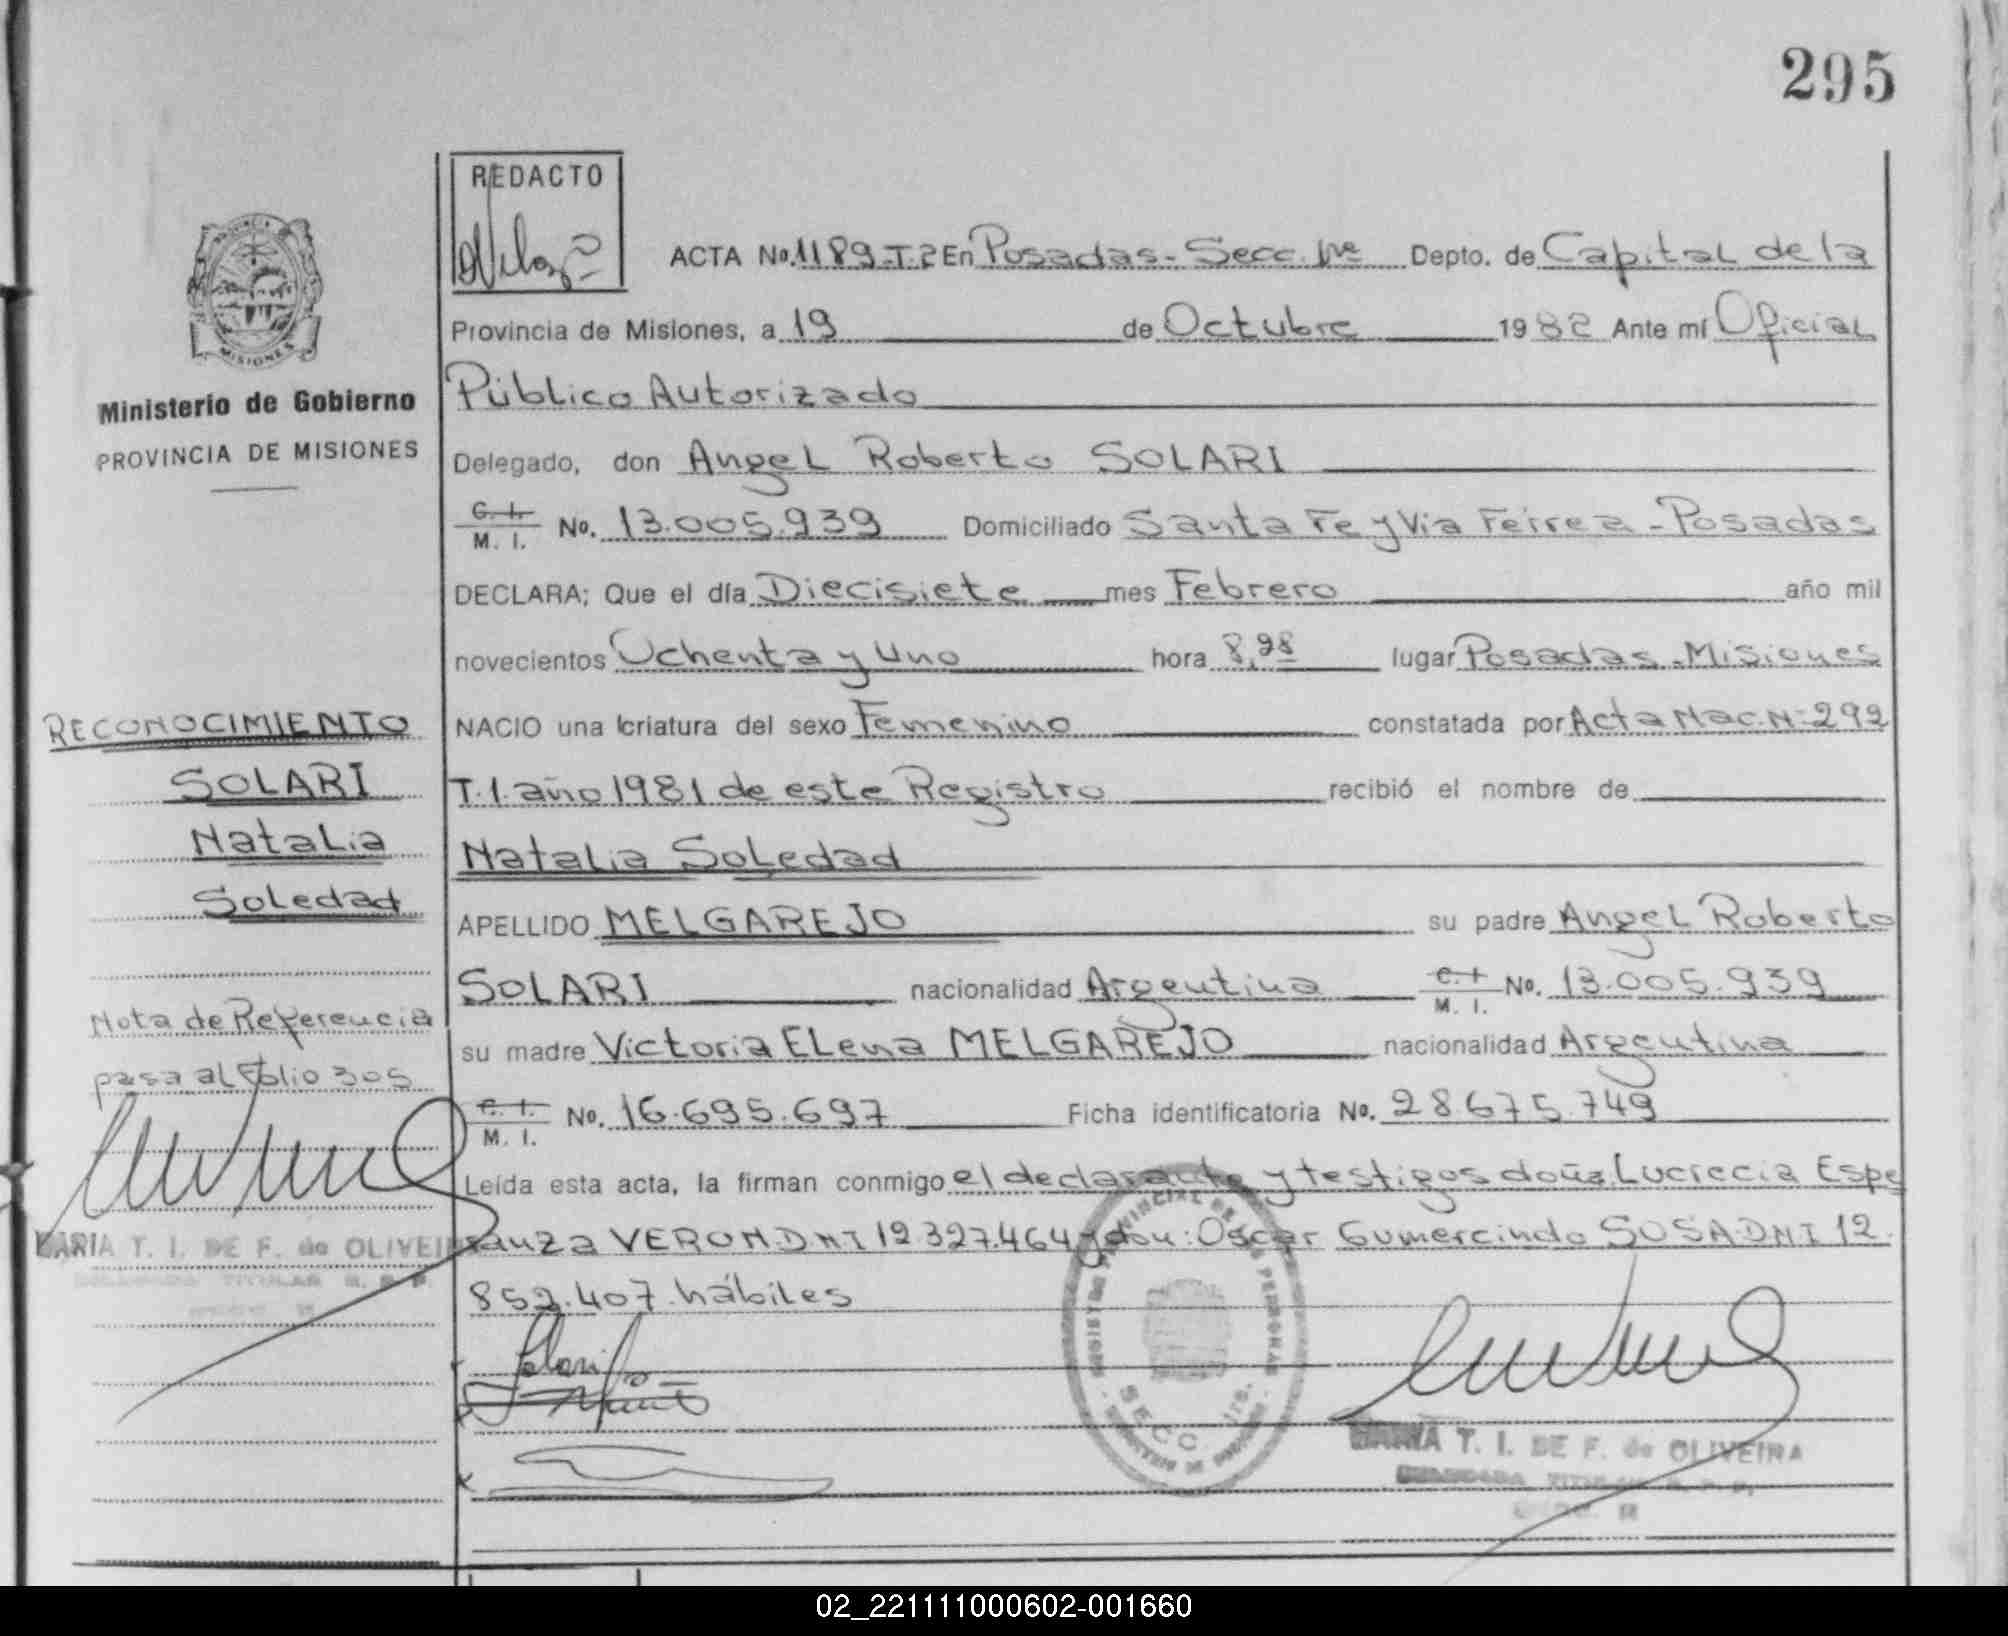 295
REDACTO
ACTA No. 1189-T.2 En Posadas - Secc. 1ra Depto. de Capital de la
Provincia de Misiones, a 19 de Octubre 1982 Ante mí Oficial
Público Autorizado
Delegado, don Angel Roberto SOLARI
C. I. M. I. No. 13.005.939 Domiciliado Santa Fe y Via Ferrea - Posadas
DECLARA; Que el día Diecisiete mes Febrero año mil
novecientos Ochenta y Uno hora 8,28 lugar Posadas - Misiones
NACIO una criatura del sexo Femenino constatada por Acta Nac. Nº 292
T.1. año 1981 de este Registro recibió el nombre de
Natalia Soledad
APELLIDO MELGAREJO su padre Angel Roberto
SOLARI nacionalidad Argentina C. I. M. I. No. 13.005.939
su madre Victoria Elena MELGAREJO nacionalidad Argentina
C. I. M. I. No. 16.695.697 Ficha identificatoria No. 28675.749
Leída esta acta, la firman conmigo el declarante y testigos doña: Lucrecia Espe
ranza VERON DNI 12.327.464 y don: Oscar Gumercindo SOSA DNI 12.
852.407. hábiles
PROVINCIA
MISIONES
Ministerio de Gobierno
PROVINCIA DE MISIONES
RECONOCIMIENTO
SOLARI
Natalia
Soledad
Nota de Referencia
pasa al Folio 305
MARIA T. I. DE F. de OLIVEIRA
Solari
SECC. 1ra.
MARIA T. I. DE F. de OLIVEIRA
02_221111000602-001660